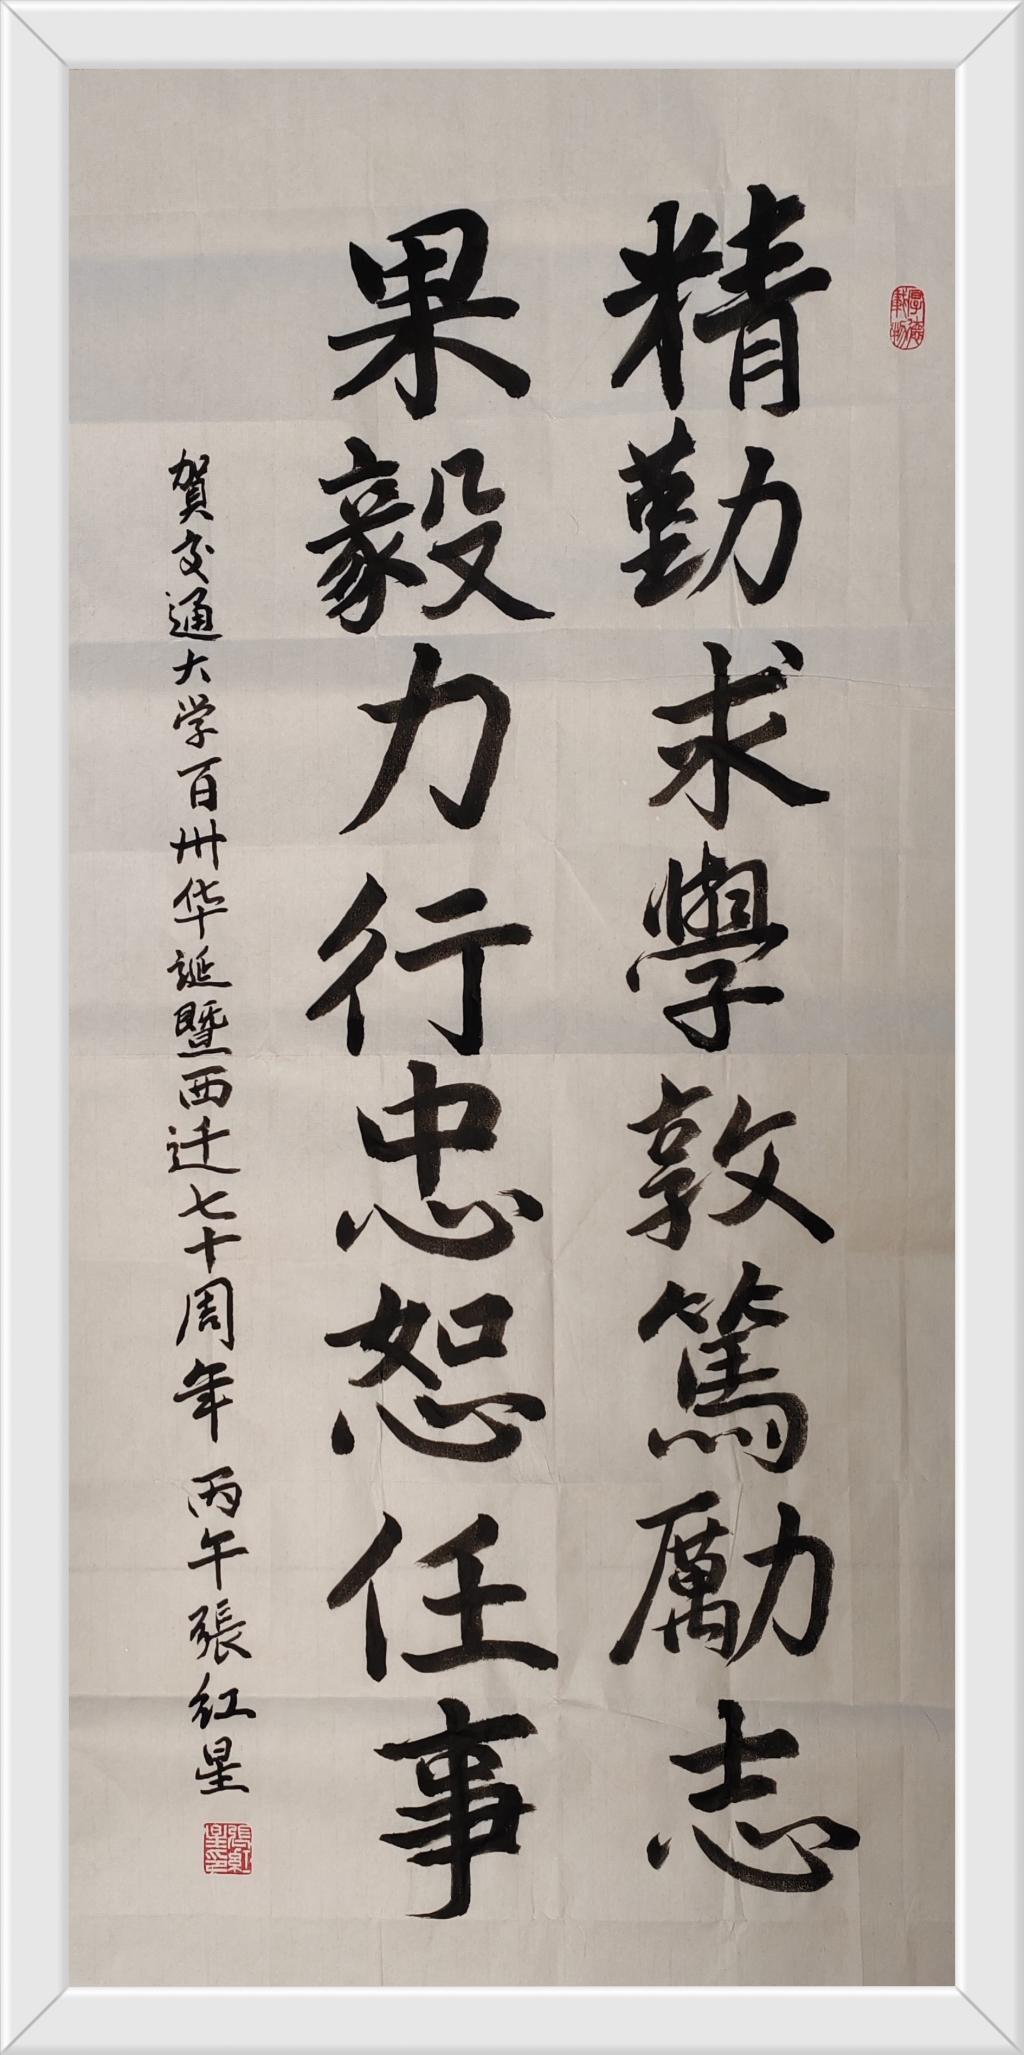 厚德載物
精勤求學敦篤勵志
果毅力行忠恕任事
賀交通大学百卅华誕暨西迁七十周年 丙午 張红星
張紅星印